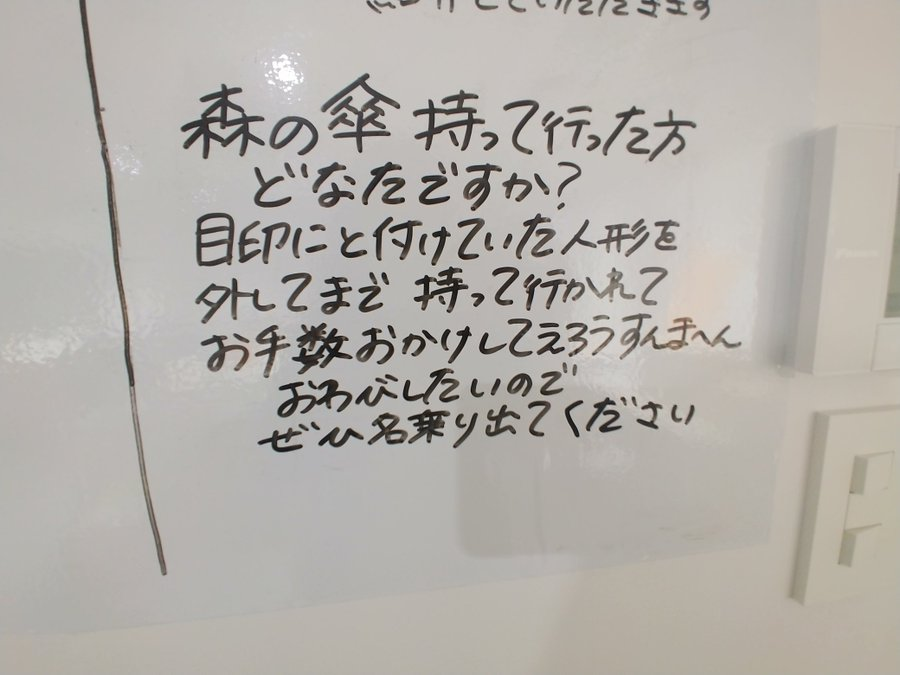 していただきます
森の傘 持って行った方
どなたですか?
目印にと付けていた人形を
外してまで 持って行かれて
お手数おかけしてえろうすんまへん
おわびしたいので
ぜひ名乗り出てください